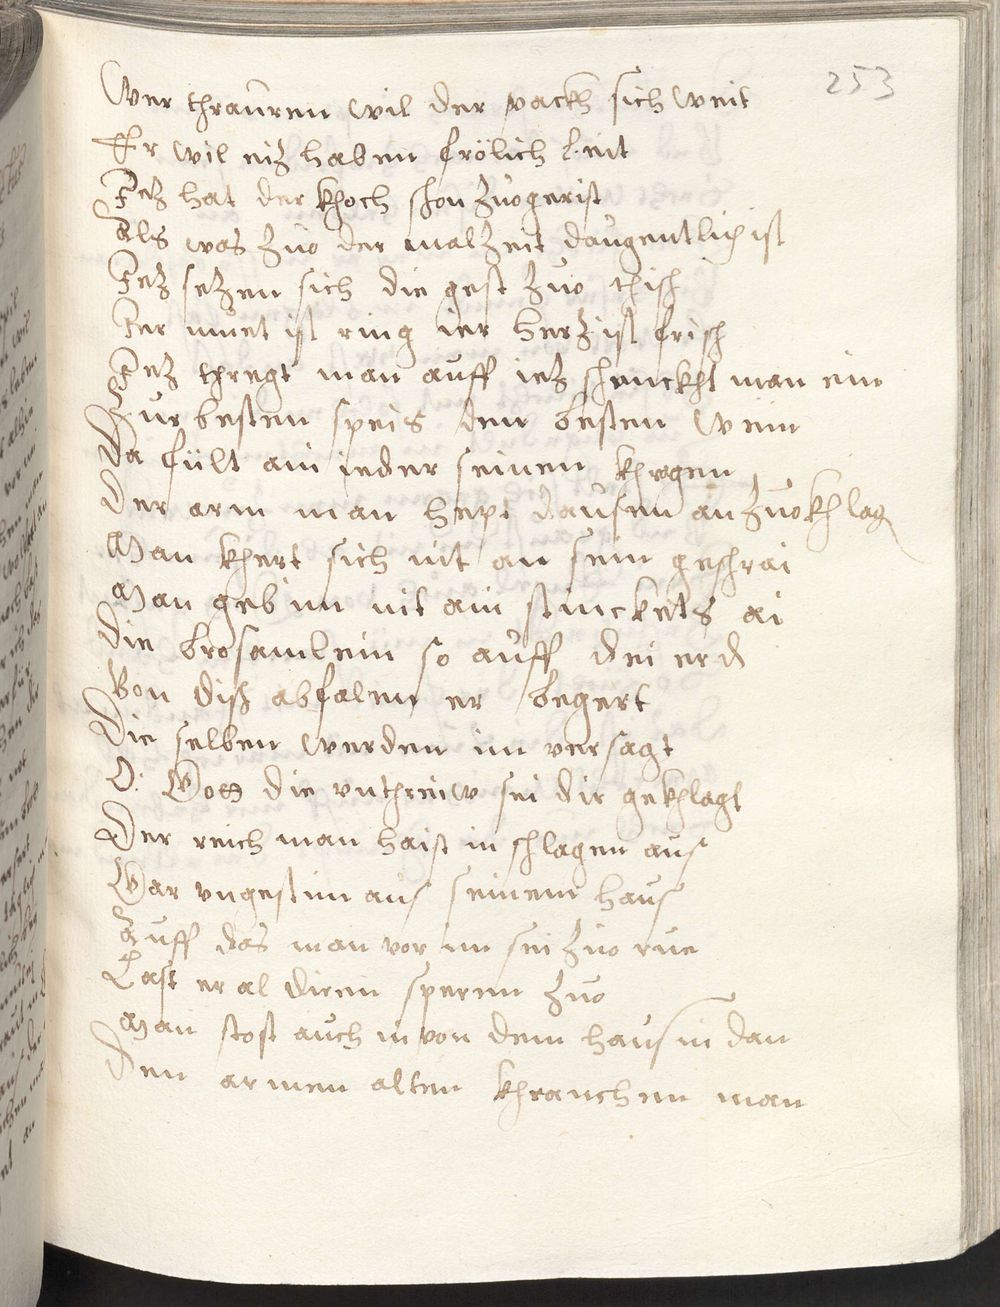 253
Wer thrauren wil der packh sich weit
Er wil eiz haben frölich leit
Jez hat der khoch schon zuogerist
Als was zuo der malzeit daugentlich ist
Jez sezen sich die gest zuo thisch
Jer muet ist ring ier herz ist frisch
Jez thregt man auff iez schenckht man ein
Zur besten speis den besten wein
Da fült ain ieder seinen khragen
Der arm man hept dausen an zuo khlag
Man khert sich nit an sein geschrai
Man geb im nit ain stinckets ai
Die brosamlein so auff dei erd
Von disch abfalen er begert
Die selben werden im versagt
O. Gott die vnthreiw sei dir gekhlagt
Der reich man haist in schlagen aus
Gar vngestim aus seinem haus
Auff das man vor im sei zuo rue
Last er al diren speren zuo
Man stost auch in von dem haus in dan
Den armen alten khranchen man